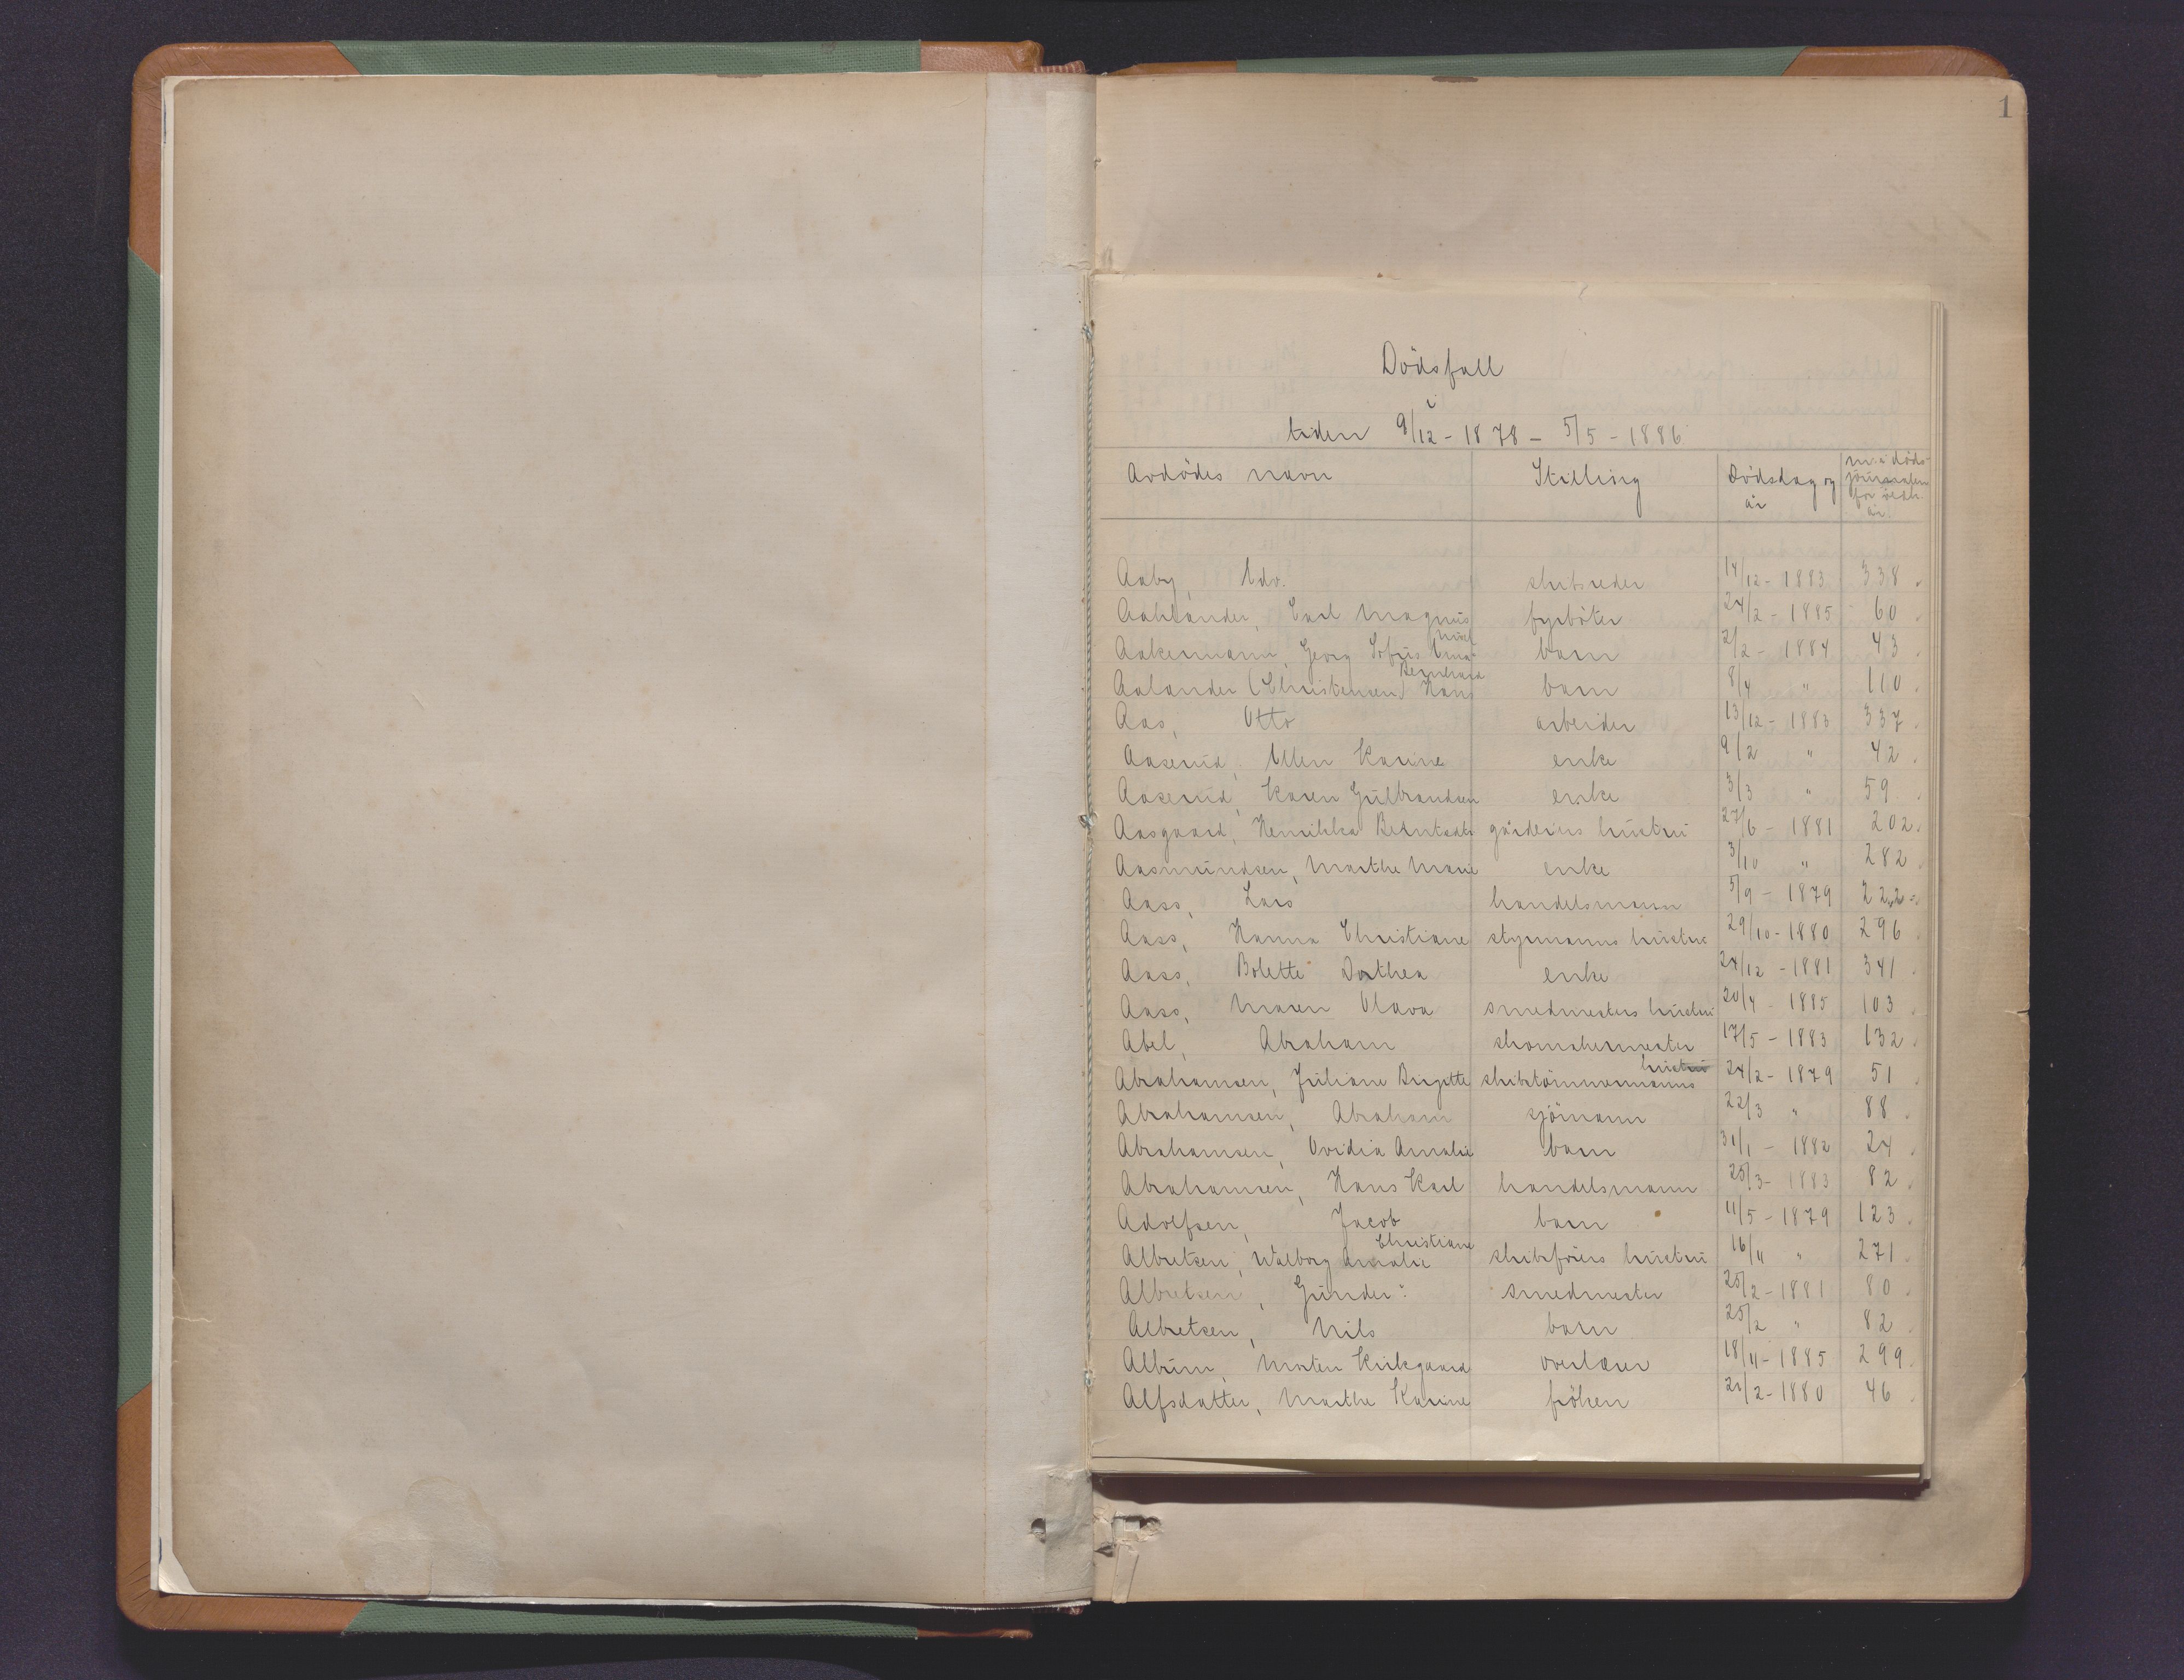 1
Dödsfall
i
tiden 9/12 - 1878 - 5/5 - 1886
Avdödes navn Stilling Dödsdag og år nr. i döds-journalen for vedk. år.
Aaby, Edv. skibsreder 14/12 - 1883 338
Aahlander, Carl Magnus fyrböter 24/2 - 1885 60
Aakermann, Georg Sofus barn 2/2 - 1884 43
Aalander (Christensen) Hans Bernhard barn 8/4 " 110
Aas, Otto arbeider 13/12 - 1883 337
Aaserud, Ellen Karine enke 9/2 " 42
Aaserud, Karen Gulbrandsen enke 3/3 " 59
Aasgaard, Henrikka Berntsdtr gårdeiers hustru 27/6 - 1881 202
Aasmundsen, Marthe Marie enke 3/10 " 282
Aass, Lars handelsmann 5/9 - 1879 222
Aass, Hanna Christiane styrmanns hustru 29/10 - 1880 296
Aass, Bolette Dorthea enke 24/12 - 1881 341
Aass, Maren Olava smedmesters hustru 20/4 - 1885 103
Abel, Abraham skomakermester 17/5 - 1883 132
Abrahamsen, Juliane Birgitte skibstömmermanns hustru 24/2 - 1879 51
Abrahamsen, Abraham sjömann 22/3 " 88
Abrahamsen, Ovidia Amalia barn 31/1 - 1882 24
Abrahamsen, Hans Karl handelsmann 25/3 - 1883 82
Adolfsen, Jacob barn 11/5 - 1879 123
Albretsen, Walborg Amalie Christiane skibsförers hustru 16/11 " 271
Albretsen, Gunder smedmester 25/2 - 1881 80
Albretsen, Nils barn 25/2 " 82
Album, Morten Kirkgaard overlærer 18/11 - 1885 299
Alfsdatter, Marthe Karine fröken 21/2 - 1880 46